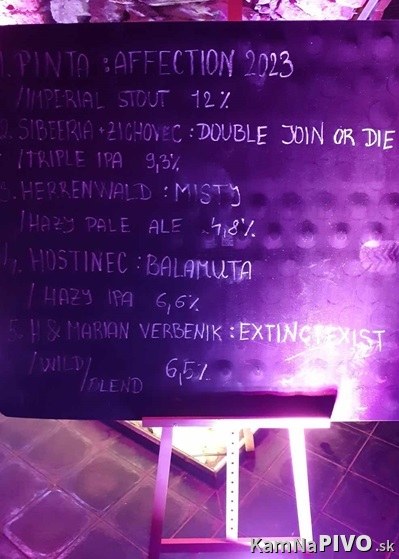 1. PINTA : AFFECTION 2023
/IMPERIAL STOUT 12%
2. SIBEERIA + ZICHOVEC : DOUBLE JOIN OR DIE
/TRIPLE IPA 9,3%
3. HERRENWALD : MISTY
/HAZY PALE ALE 4,8%
4. HOSTINEC : BALAMUTA
/ HAZY IPA 6,6%
5. H & MARIAN VERBENIK : EXTINCT EXIST
/WILD/ 6,5%
/BLEND
KamNaPIVO.sk